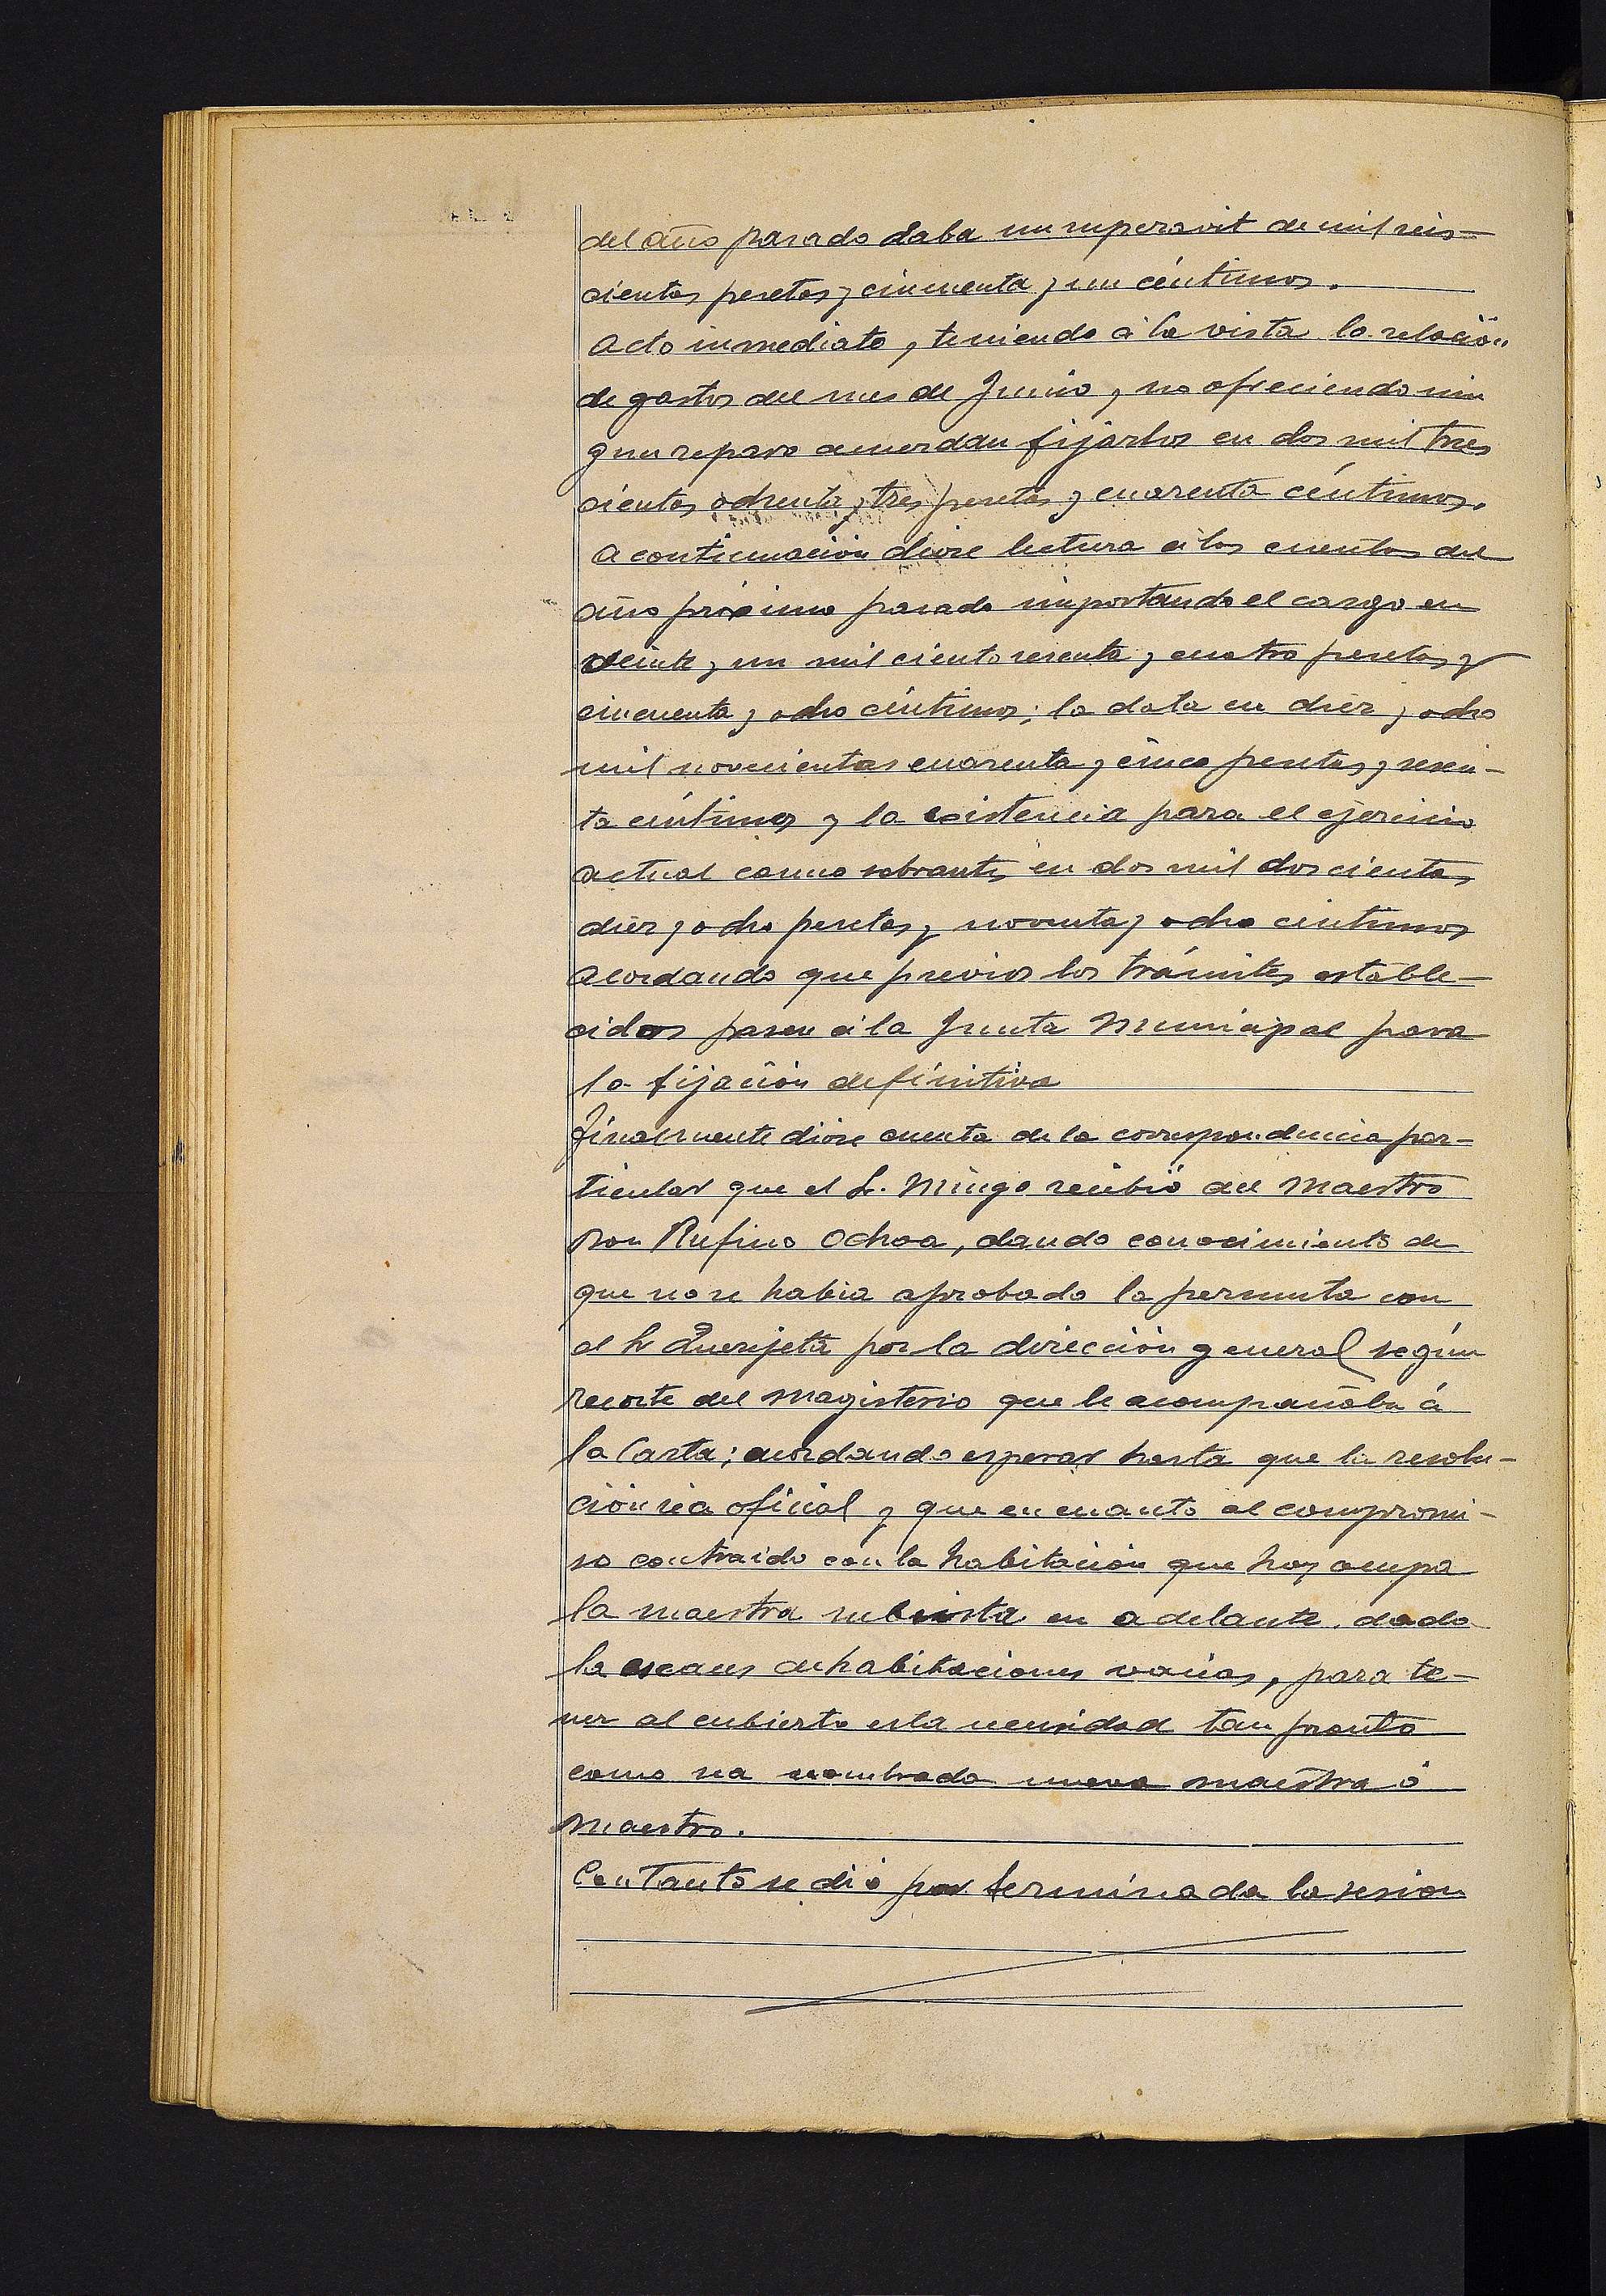 del año pasado daba un superavit de mil seis-
cientas pesetas y cincuenta y un céntimos.
Acto inmediato, teniendo á la vista la relación
de gastos del mes de Junio, no ofreciendo nin
gun reparo acuerdan fijarlos en dos mil tres
cientas ochenta y tres pesetas y cuarenta céntimos.
A continuación diose lectura á las cuentas del
año próximo pasado importando el cargo en
veinte y un mil ciento sesenta y cuatro pesetas y
cincuenta y ocho céntimos; la data en diez y ocho
mil novecientas cuarenta y cinco pesetas y sesen-
ta céntimos y la existencia para el ejercicio
actual como sobrante, en dos mil doscientas
diez y ocho pesetas y noventa y ocho céntimos
acordando que previos los trámites estable-
cidos pasen á la Junta Municipal para
la fijación definitiva
Finalmente diose cuenta de la correspondencia par-
ticular que el Sr. Mingo recibió del Maestro
Don Rufino Ochoa, dando conocimiento de
que no se habia aprobado la permuta con
el Sr Querejeta por la dirección general según
recorte del Magisterio que le acompañaba á
la Carta; acordando esperar hasta que la resolu-
ción sea oficial y que en cuanto al compromi-
so contraido con la habitación que hoy ocupa
la maestra subsista en adelante, dada
la escases de habitaciones vacias, para te-
ner al cubierto esta necesidad tan pronto
como sea nombrada nueva maestra ó
Maestro.
Con Tanto se dió por terminada la sesion